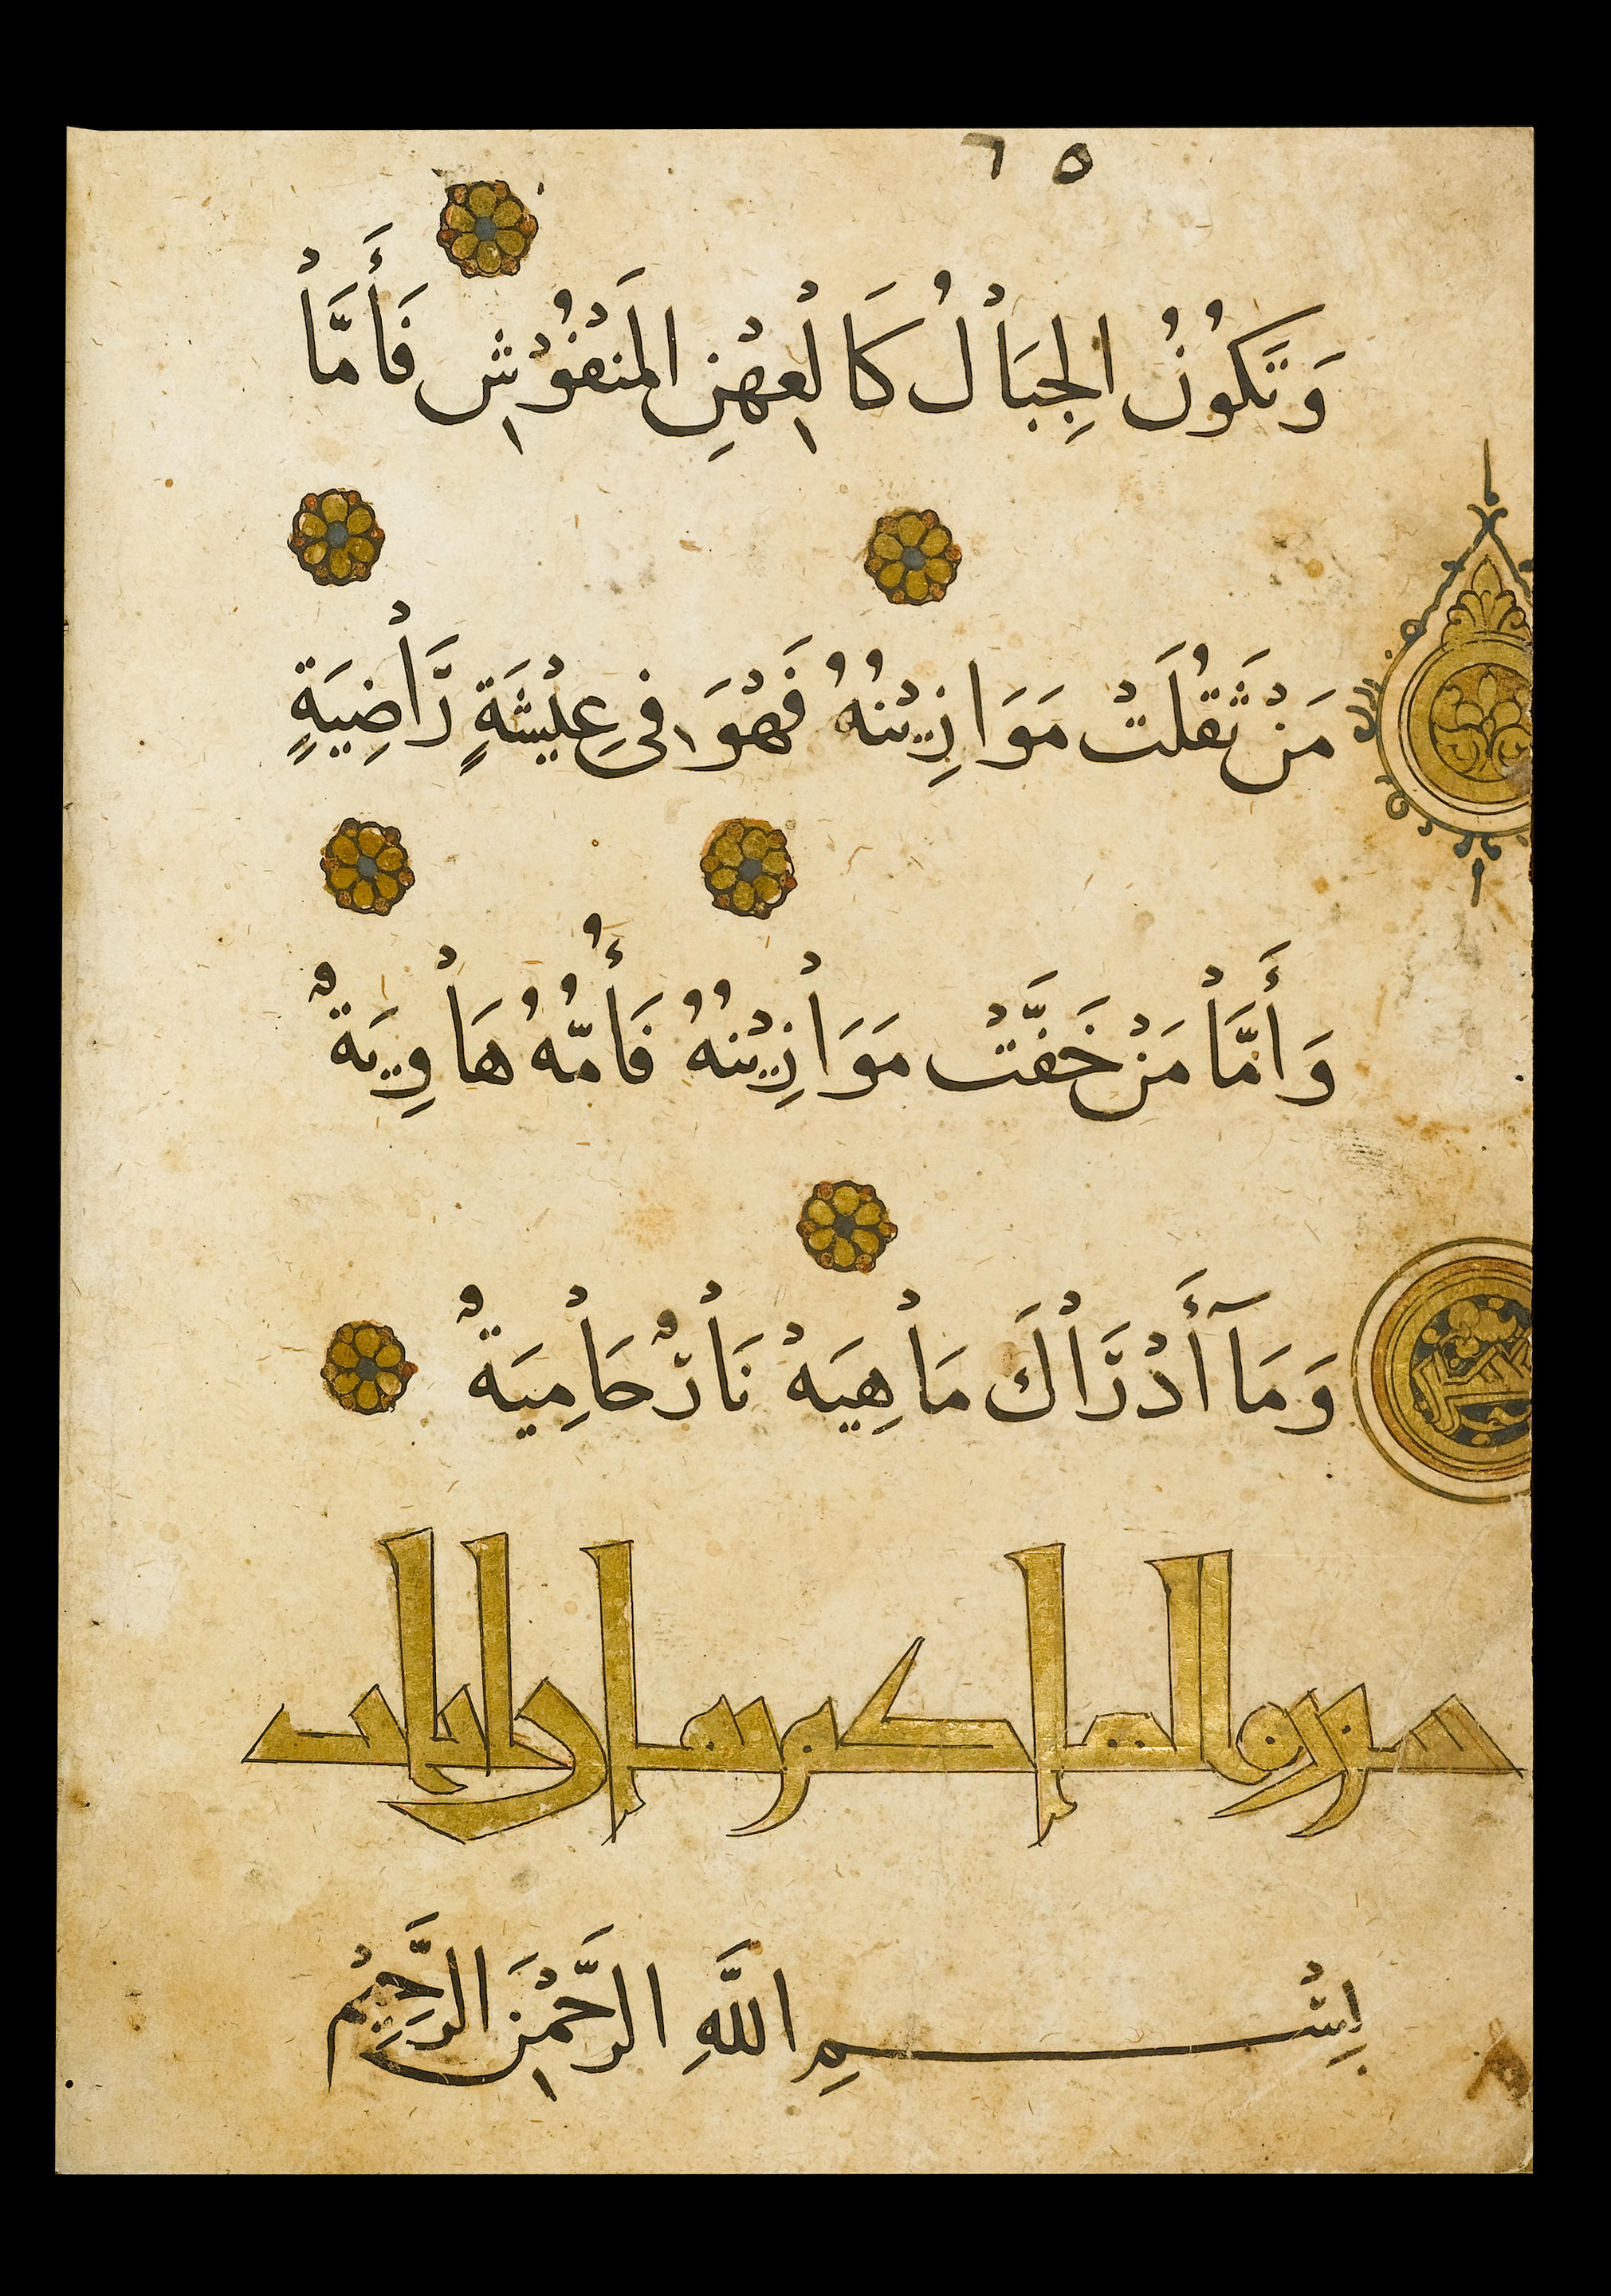 ٦ ٥
وَتَكُونُ الْجِبَالُ كَالْعِهْنِ الْمَنْفُوْشِ فَأَمَّا
مَنْ ثَقُلَتْ مَوَازِيْنُهُ فَهْوَ فِي عِيْشَةٍ رَّاضِيَةٍ
وَأَمَّا مَنْ خَفَّتْ مَوَازِيْنُهُ فَأُمُّهُ هَاوِيَةٌ
وَمَآ أَدْرَاكَ مَا هِيَهْ نَارٌ حَامِيَةٌ
سورة التكاثر ثمان ايات
بِسْمِ اللَّهِ الرَّحْمٰنِ الرَّحِيْمِ